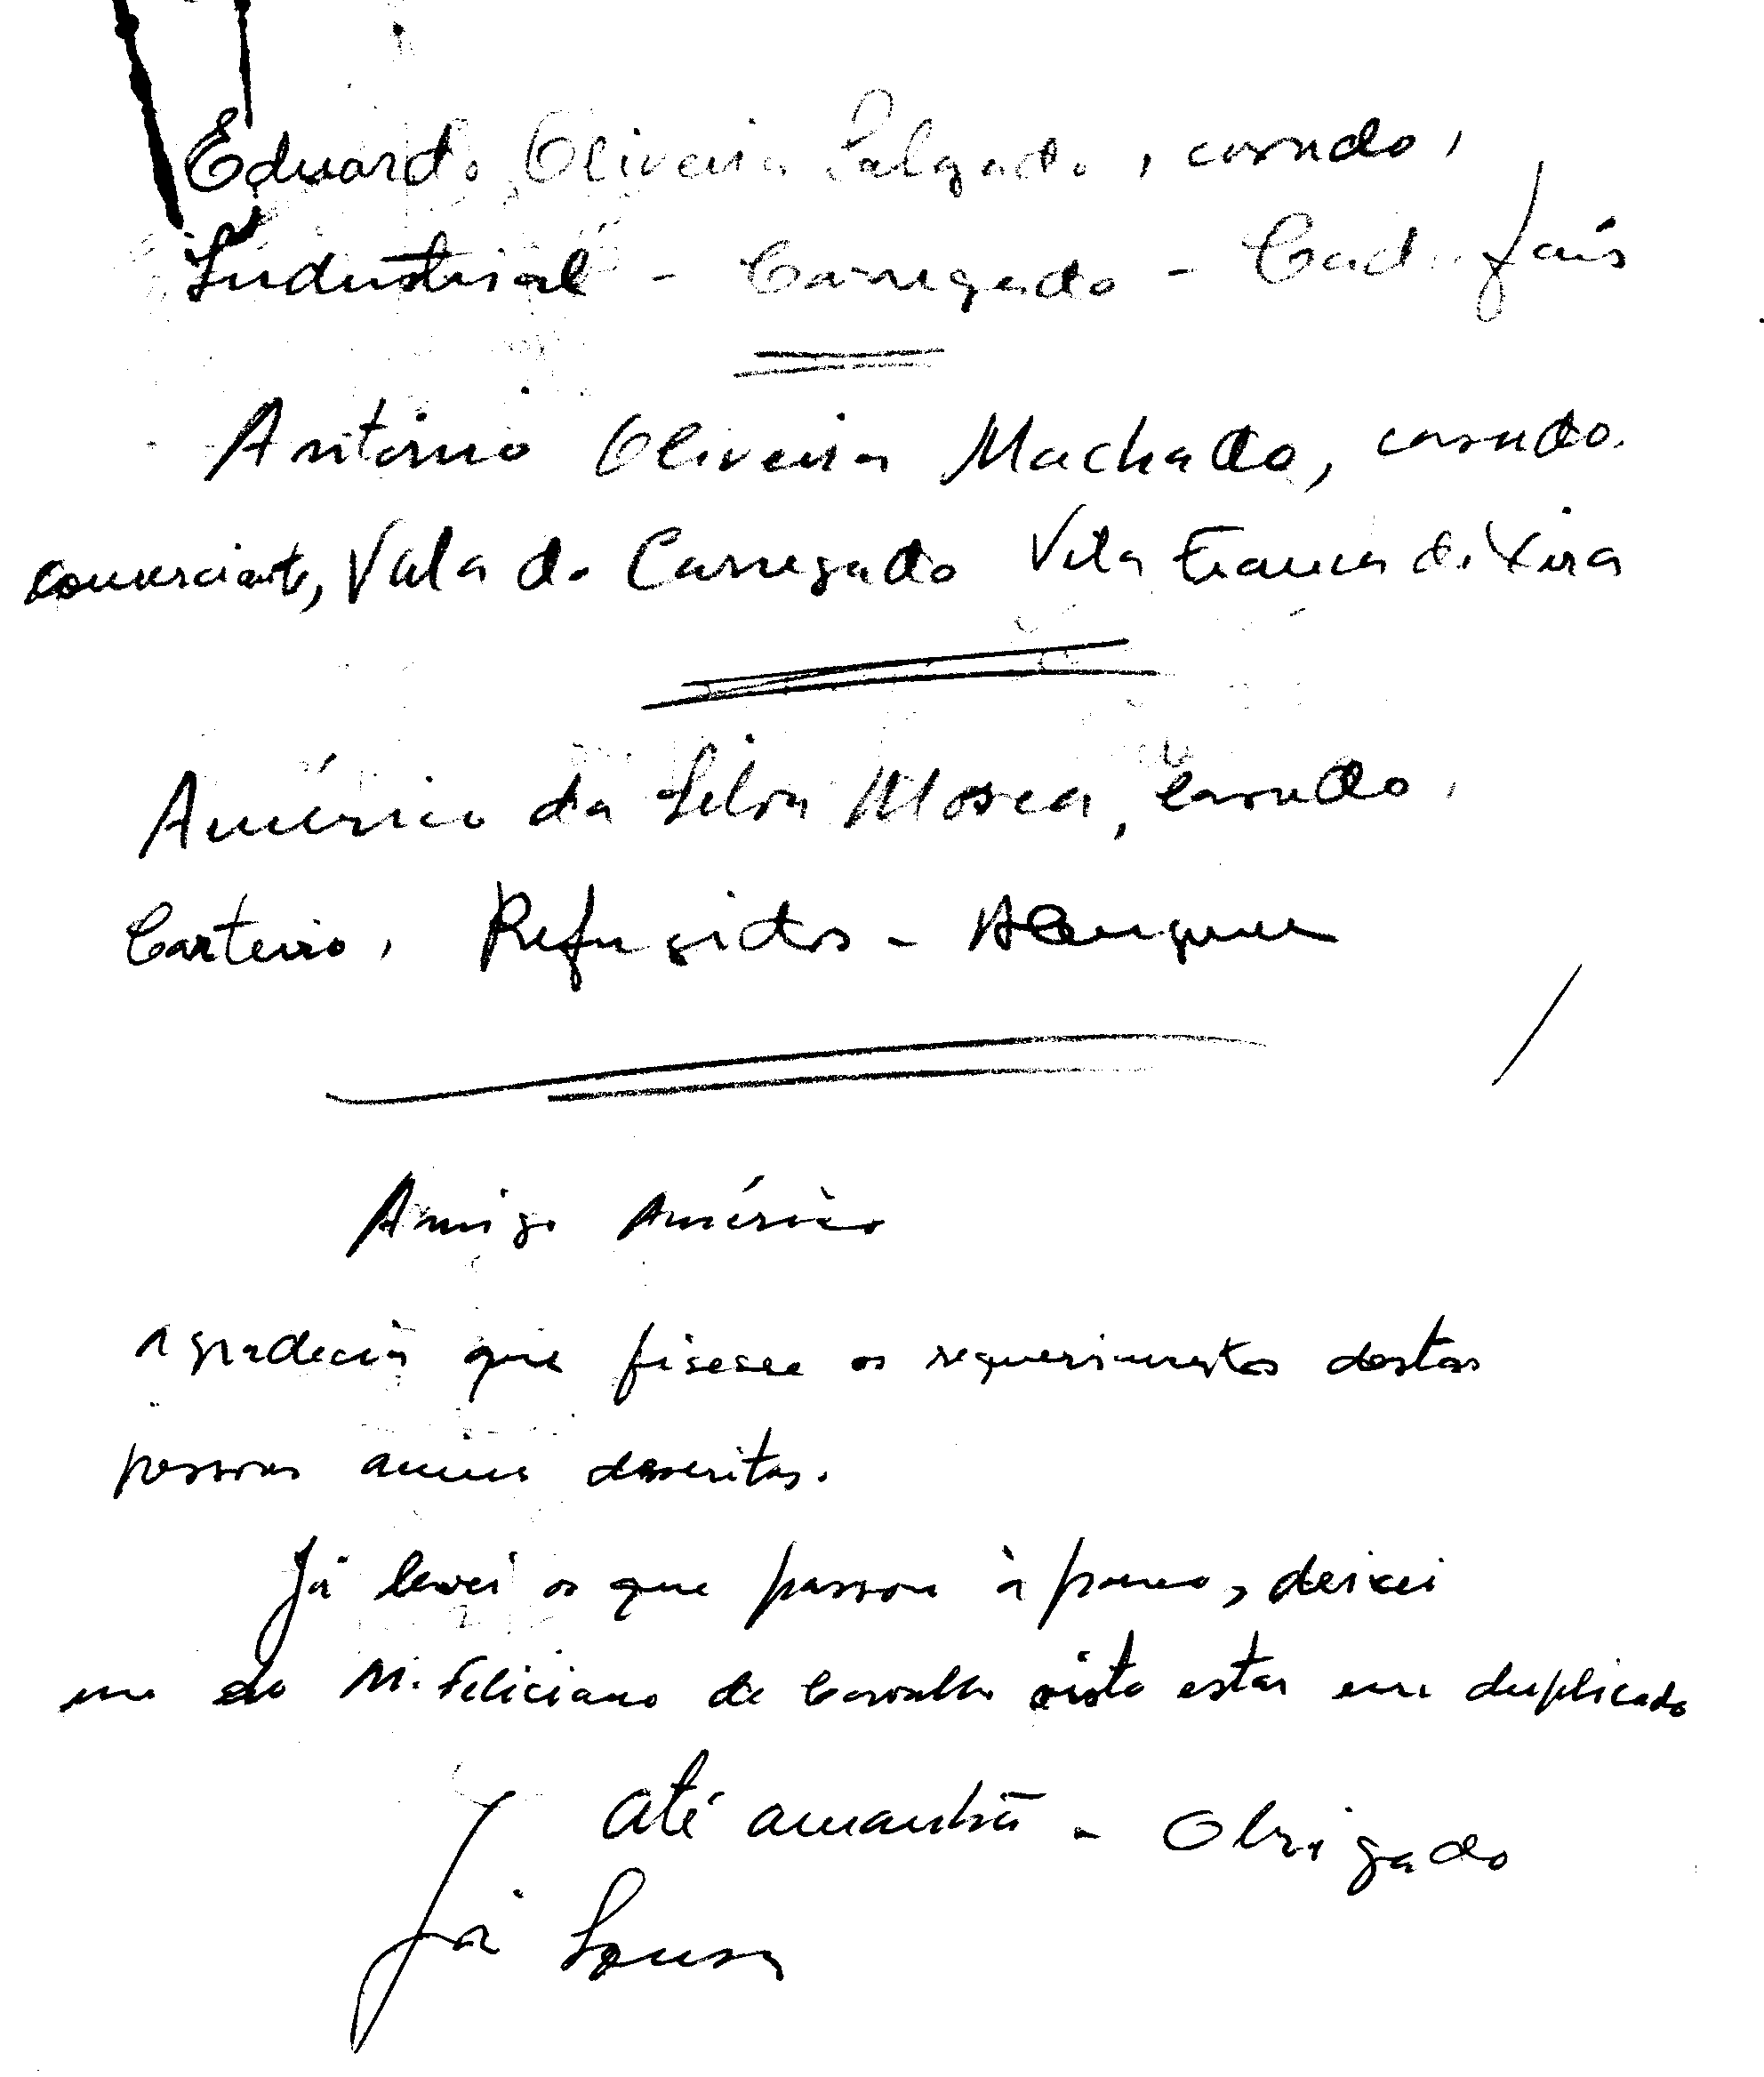 Eduardo Oliveira Salgado, casado,
Industrial - Carregado - Cadafais
António Oliveira Machado, casado.
comerciante, Vala do Carregado Vila Franca de Xira
Américo da Silva Mosca, casado,
Carteiro, Refugidos - Alenquer
Amigo Américo
agradecia que fisesse os requerimentos destas
pessoas acima descritas.
Já levei os que passou à pouco, deixei
um do M. Feliciano de Carvalho visto estar em duplicado
até amanhã - Obrigado
Sousa